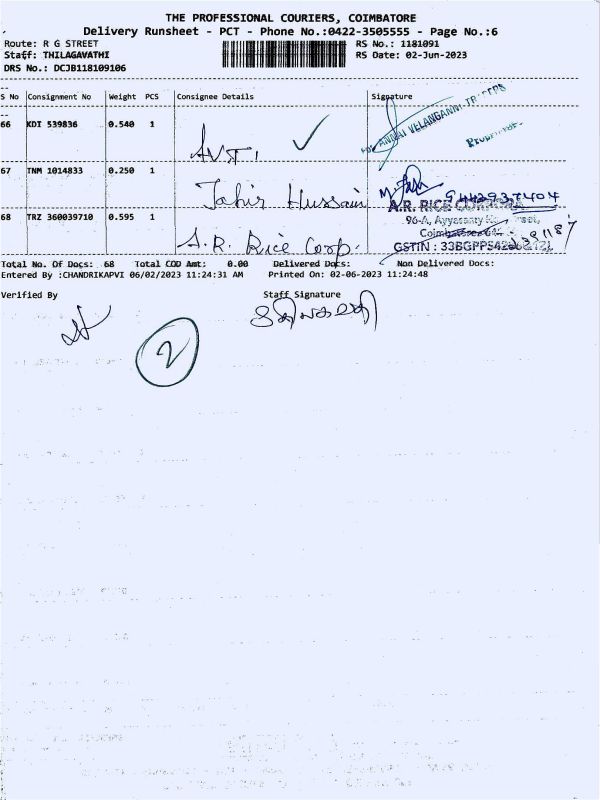 THE PROFESSIONAL COURIERS, COIMBATORE
Delivery Runsheet - PCT - Phone No.:0422-3505555 - Page No.:6
Route: R G STREET
RS No.: 1181091
Staff: THILAGAVATHI
RS Date: 02-Jun-2023
DRS No.: DCJB118109106
S No Consignment No Weight PCS Consignee Details Signature
66 KDI 539836 0.540 1 AVT. ANNAI VELANGANNI TRADERS
67 TNM 1014833 0.250 1 Tahir Hussain
68 TRZ 360039710 0.595 1 A.R. Rice Corp.
A.R. RICE
96-A, Ayyasamy
GSTIN : 33BGPPS
Total No. Of Docs: 68 Total COD Amt: 0.00 Delivered Docs: Non Delivered Docs:
Entered By :CHANDRIKAPVI 06/02/2023 11:24:31 AM Printed On: 02-06-2023 11:24:48
Verified By Staff Signature
2